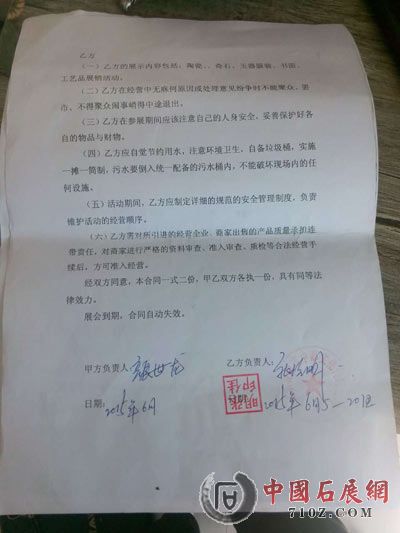 乙方
（一）乙方的展示内容包括：陶瓷、、奇石、玉器骏骏、书画、
工艺品展销活动。
（二）乙方在经营中无麻何原因或处理意见纷争时不能聚众、罢
市、不得聚众闹事峭得中途退出。
（三）乙方在参展期间应该注意自己的人身安全，妥善保护好各
自的物品与财物。
（四）乙方应自觉节约用水，注意环境卫生，自备垃圾桶，实施
一摊一筒制，污水要倒入统一配备的污水桶内，不能破坏现场内的任
何设施。
（五）活动期间，乙方应制定详细的规范的安全管理制度，负责
维护活动的经营顺序。
（六）乙方需对所引进的经营企业、商家出售的产品质量承担连
带责任，对商家进行严格的资料审查、准入审查、质检等合法经营手
续后，方可准入经营。
经双方同意，本合同一式二份，甲乙双方各执一份，具有同等法
律效力。
展会到期，合同自动失效。
甲方负责人：
乙方负责人：
日期：2015年6月
2015年6月5—20日
中國石展網
710Z.COM